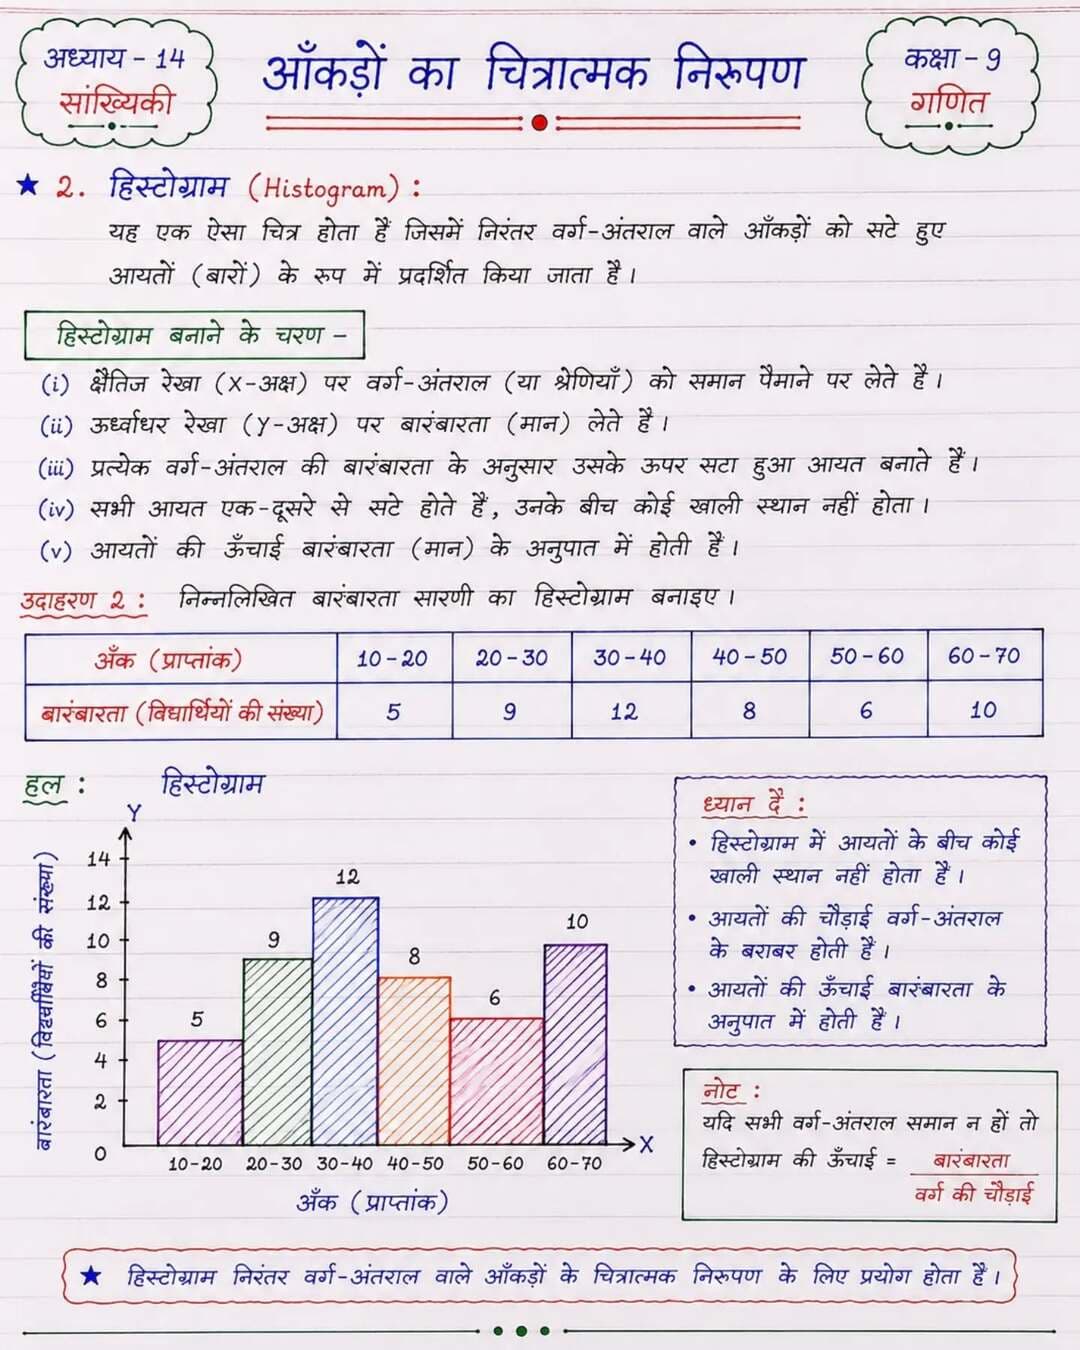 अध्याय - 14
सांख्यिकी
आँकड़ों का चित्रात्मक निरूपण
कक्षा - 9
गणित
★ 2. हिस्टोग्राम (Histogram) :
यह एक ऐसा चित्र होता हैं जिसमें निरंतर वर्ग-अंतराल वाले आँकड़ों को सटे हुए
आयतों (बारों) के रूप में प्रदर्शित किया जाता है।
हिस्टोग्राम बनाने के चरण -
(i) क्षैतिज रेखा (X-अक्ष) पर वर्ग-अंतराल (या श्रेणियाँ) को समान पैमाने पर लेते है।
(ii) ऊर्ध्वाधर रेखा (Y-अक्ष) पर बारंबारता (मान) लेते है।
(iii) प्रत्येक वर्ग-अंतराल की बारंबारता के अनुसार उसके ऊपर सटा हुआ आयत बनाते हैं।
(iv) सभी आयत एक-दूसरे से सटे होते हैं, उनके बीच कोई खाली स्थान नहीं होता।
(v) आयतों की ऊँचाई बारंबारता (मान) के अनुपात में होती हैं।
उदाहरण 2 : निम्नलिखित बारंबारता सारणी का हिस्टोग्राम बनाइए।
अँक (प्राप्तांक) 10-20 20-30 30-40 40-50 50-60 60-70
बारंबारता (विद्यार्थियों की संख्या) 5 9 12 8 6 10
हल : हिस्टोग्राम
Y
14
12
10
8
6
4
2
0
बारंबारता की संख्या)
5
9
12
8
6
10
X
10-20 20-30 30-40 40-50 50-60 60-70
अँक (प्राप्तांक)
ध्यान दें :
• हिस्टोग्राम में आयतों के बीच कोई
खाली स्थान नहीं होता हैं।
• आयतों की चौड़ाई वर्ग-अंतराल
के बराबर होती हैं।
• आयतों की ऊँचाई बारंबारता के
अनुपात में होती हैं।
नोट :
यदि सभी वर्ग-अंतराल समान न हों तो
हिस्टोग्राम की ऊँचाई = बारंबारता
वर्ग की चौड़ाई
★ हिस्टोग्राम निरंतर वर्ग-अंतराल वाले आँकड़ों के चित्रात्मक निरूपण के लिए प्रयोग होता हैं।